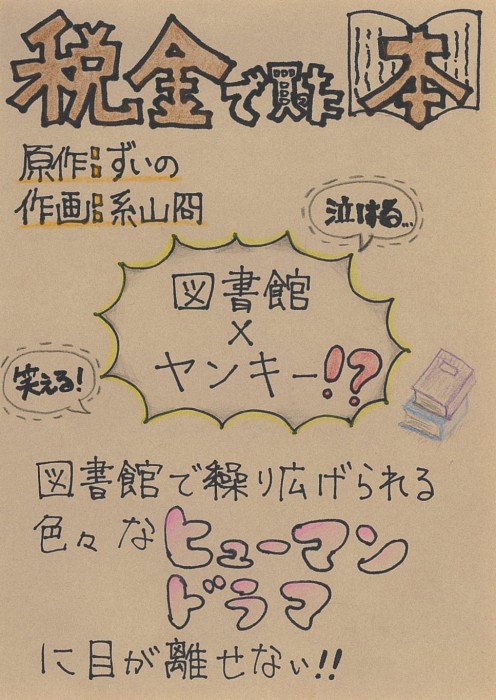 税金で買った本
原作:ずいの
作画:系山冏
泣ける…
図書館
×
ヤンキー!?
笑える!
図書館で繰り広げられる
色々なヒューマン
ドラマ
に目が離せない!!